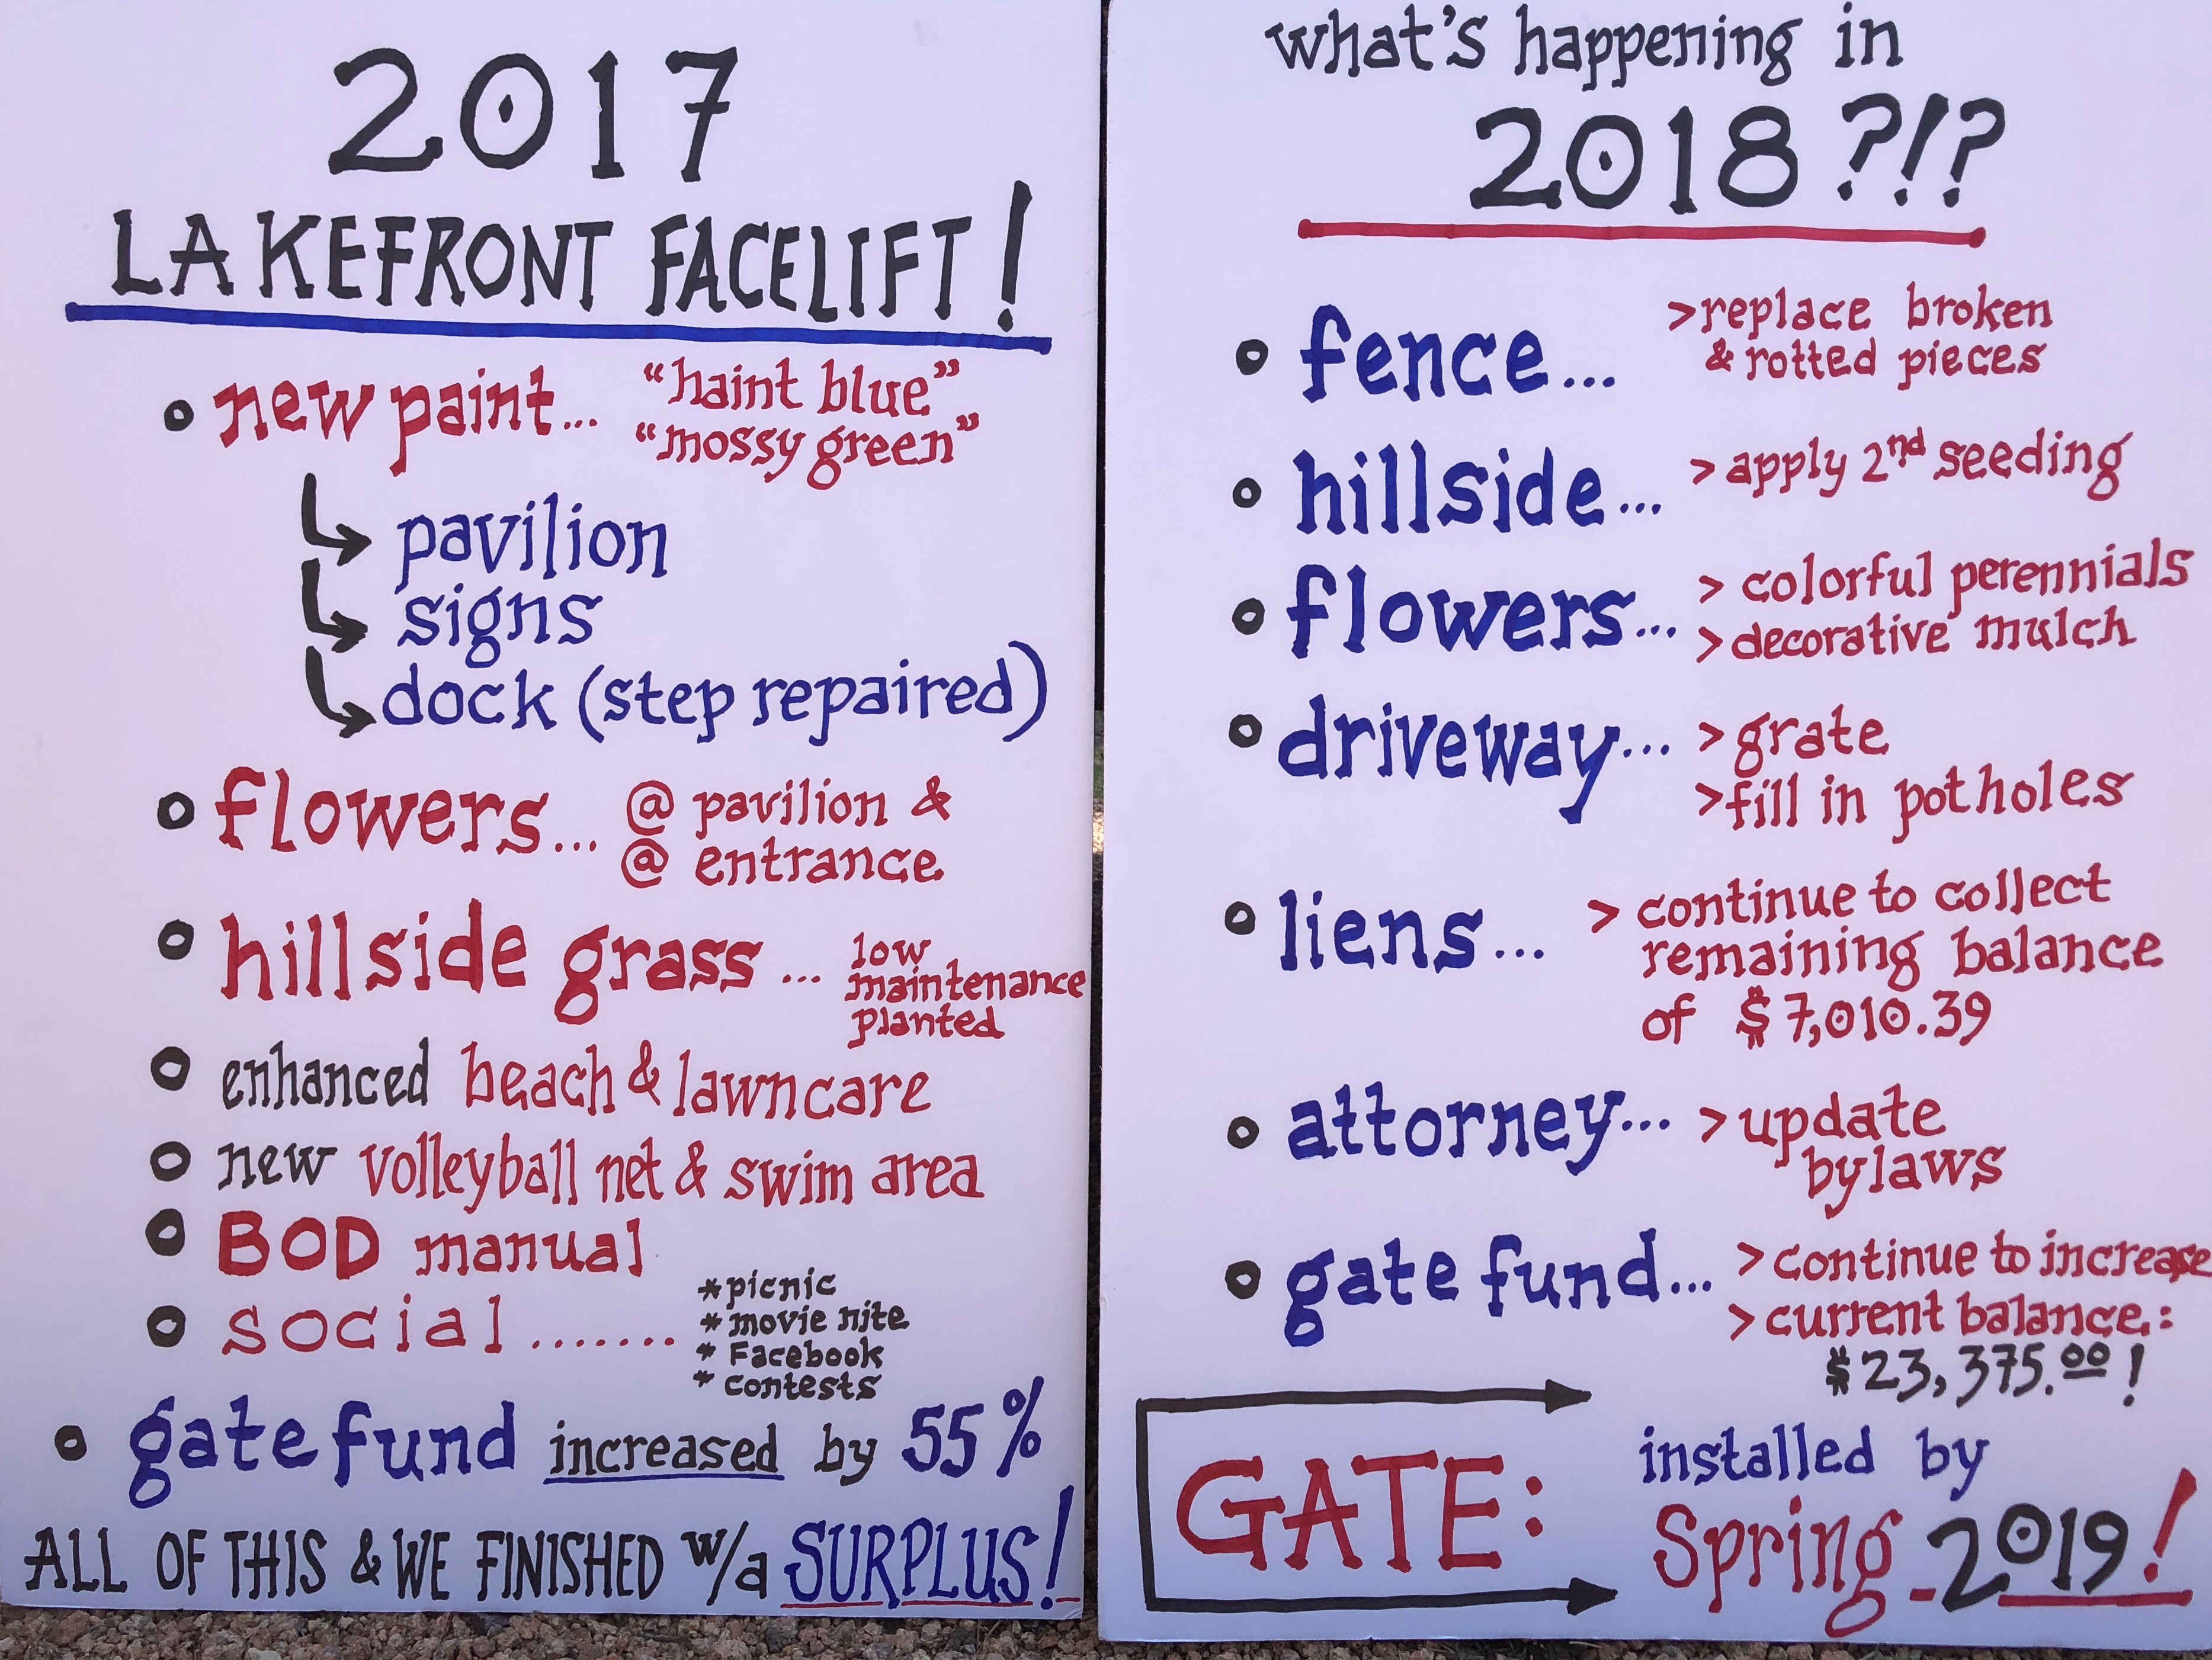 2017
LAKEFRONT FACELIFT!
new paint... "haint blue"
"mossy green"
pavilion
signs
dock (step repaired)
flowers... @ pavilion &
@ entrance
hillside grass... low
maintenance
planted
enhanced beach & lawncare
new volleyball net & swim area
BOD manual
social....... *picnic
*movie nite
* Facebook
* contests
gate fund increased by 55%
ALL OF THIS & WE FINISHED w/a SURPLUS!
what's happening in
2018?!?
fence... >replace broken
& rotted pieces
hillside... > apply 2nd seeding
flowers... > colorful perennials
>decorative mulch
driveway... >grate
>fill in potholes
liens... > continue to collect
remaining balance
of $7,010.39
attorney... >update
bylaws
gate fund... >continue to increase
>current balance:
$23,375.00!
GATE: installed by
Spring-2019!